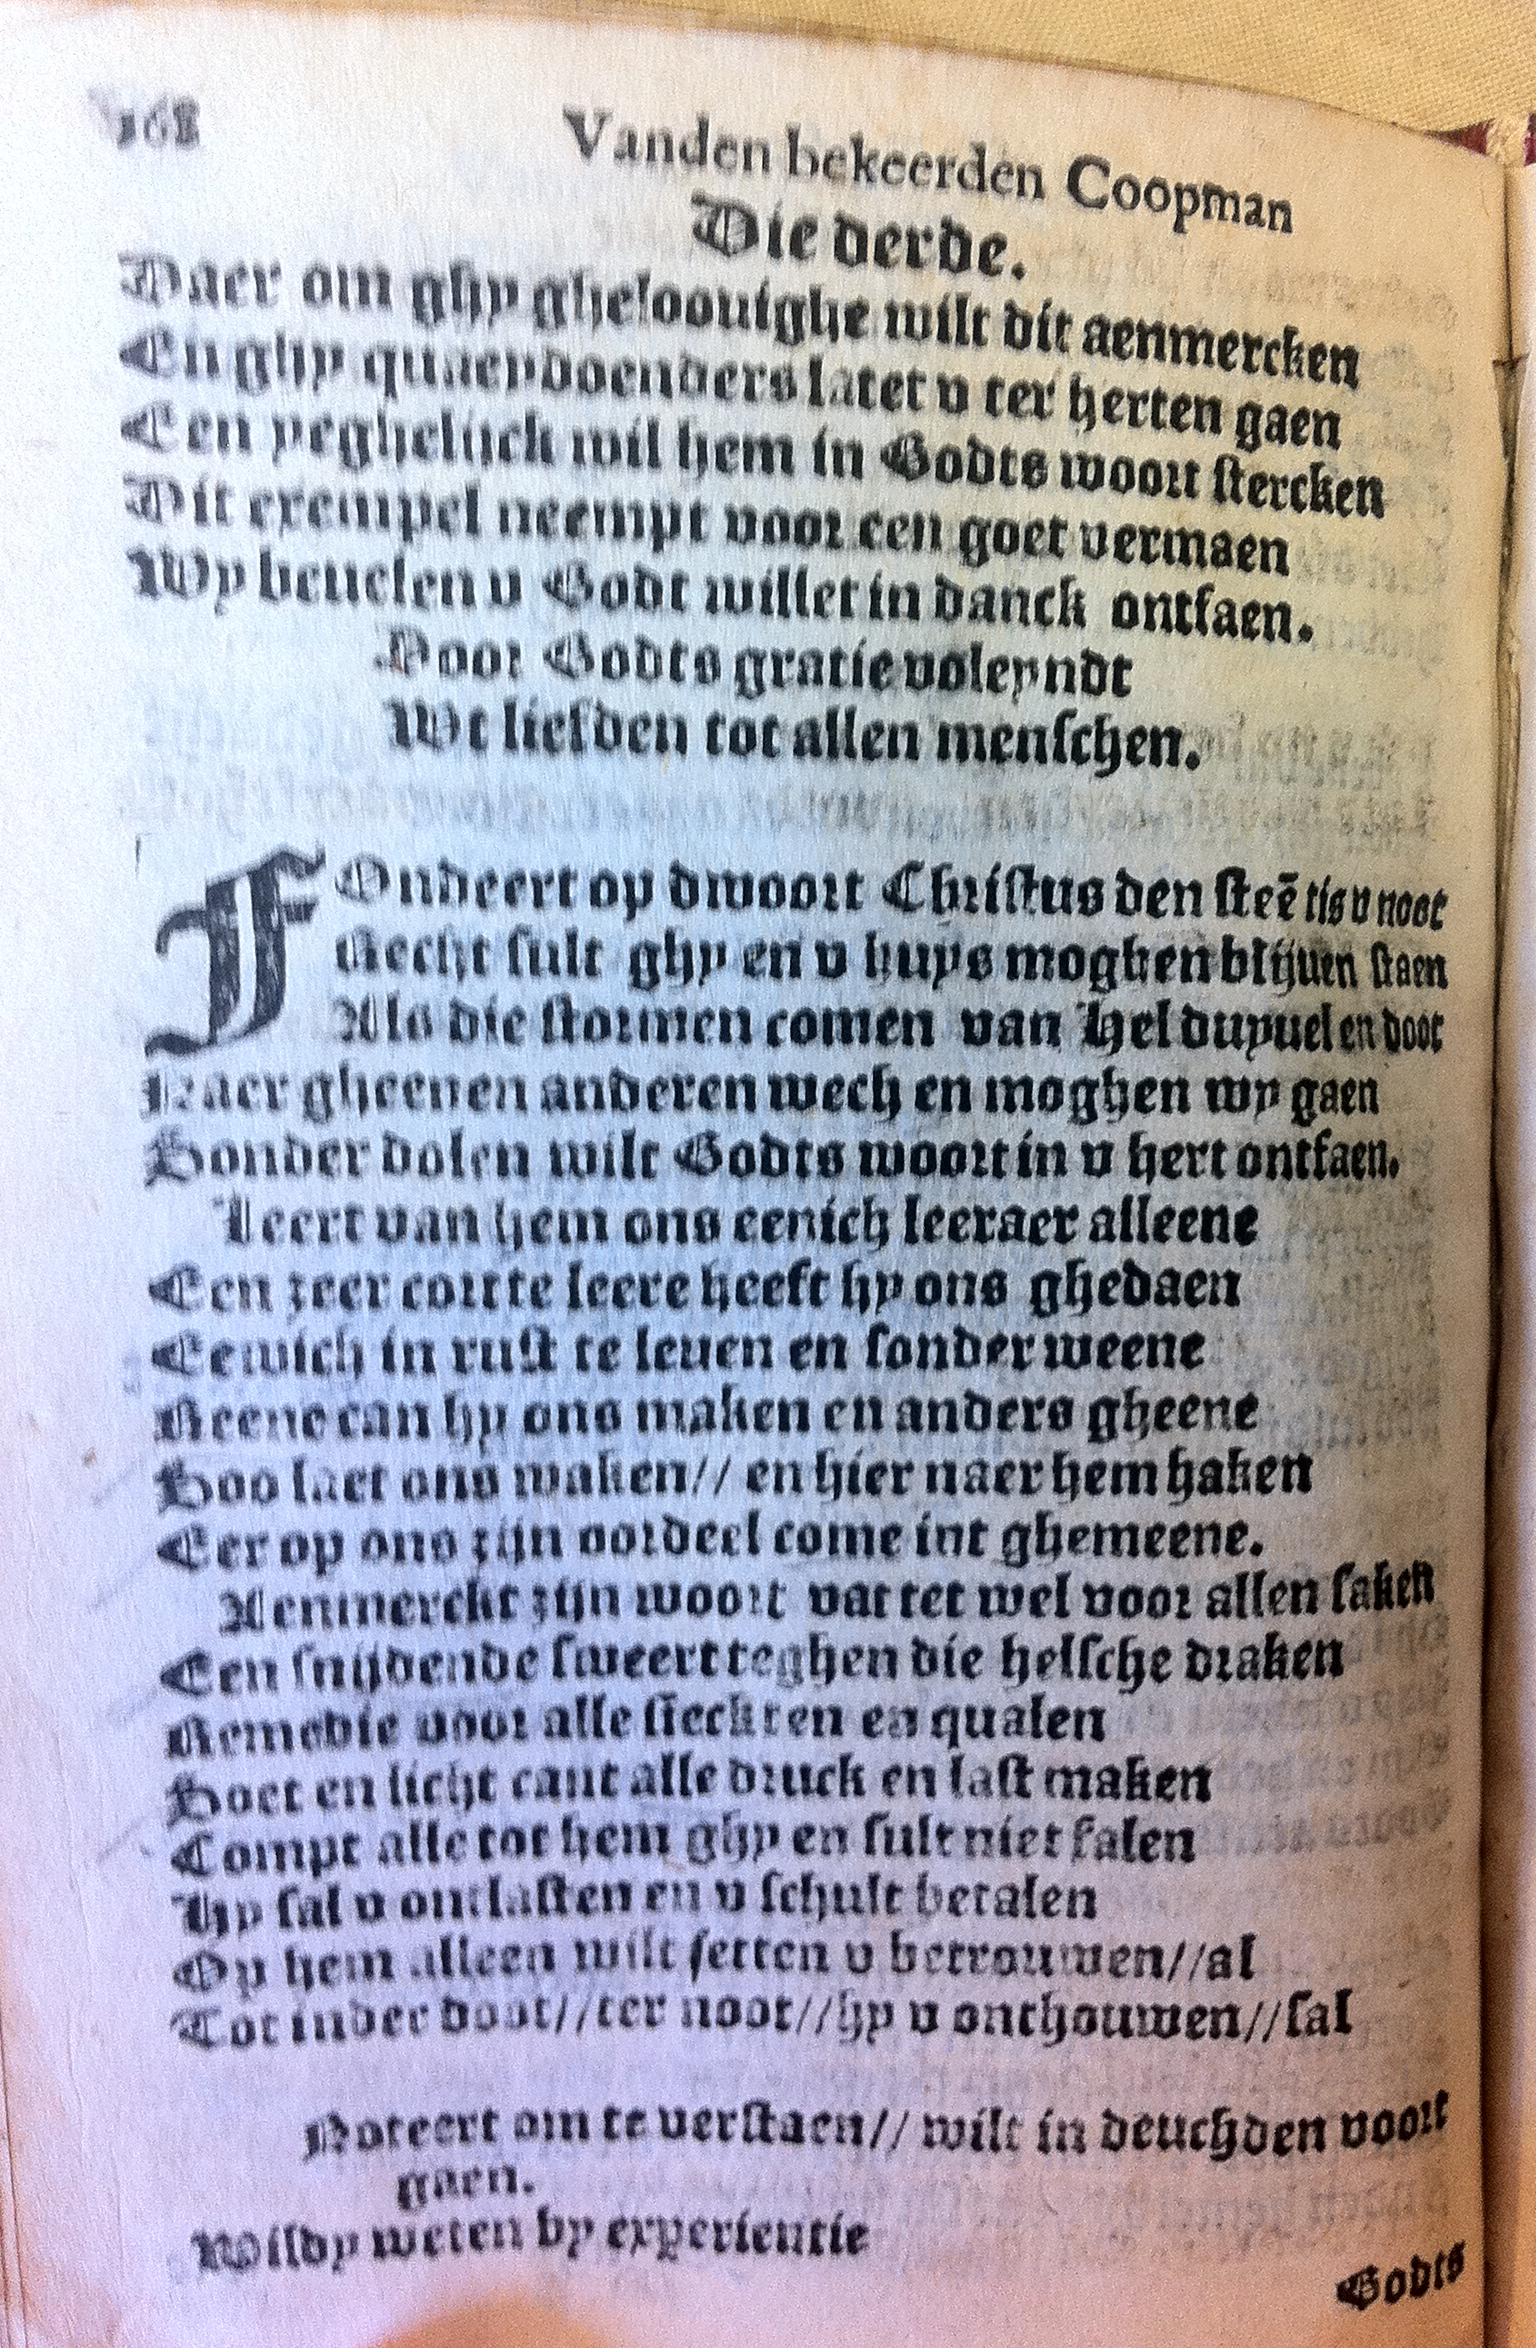 168
Vanden bekeerden Coopman
Die derde.
Daer om ghy gheloouighe wilt dit aenmercken
En ghy quaeydoenders latet v ter herten gaen
Een yeghelijck wil hem in Godts woort stercken
Dit exempel neempt voor een goet vermaen
Wy beuelen v Godt willet in danck ontfaen.
Door Godts gratie voleyndt
Wt liefden tot allen menschen.
FOndeert op dwoort Christus den steē tis v noot
Recht sult ghy en v huys moghen blijuen staen
Als die stormen comen van Hel duyuel en doot
Naer gheenen anderen wech en moghen wy gaen
Sonder dolen wilt Godts woort in v hert ontfaen.
Leert van hem ons eenich leeraer alleene
Een zeer corte leere heeft hy ons ghedaen
Eewich in rust te leuen en sonder weene
Reene can hy ons maken en anders gheene
Soo laet ons waken// en hier naer hem haken
Eer op ons zijn oordeel come int ghemeene.
Aenmerckt zijn woort vattet wel voor allen saken
Een snijdende sweert teghen die helsche draken
Remedie voor alle sieckten en qualen
Soet en licht cant alle druck en last maken
Compt alle tot hem ghy en sult niet falen
Hy sal v ontlasten en v schult betalen
Op hem alleen wilt setten v betrouwen//al
Tot inder doot//ter noot//hy v onthouwen//sal
Noteert om te verstaen// wilt in deuchden voort
gaen.
Wildy weten by experientie
Godts